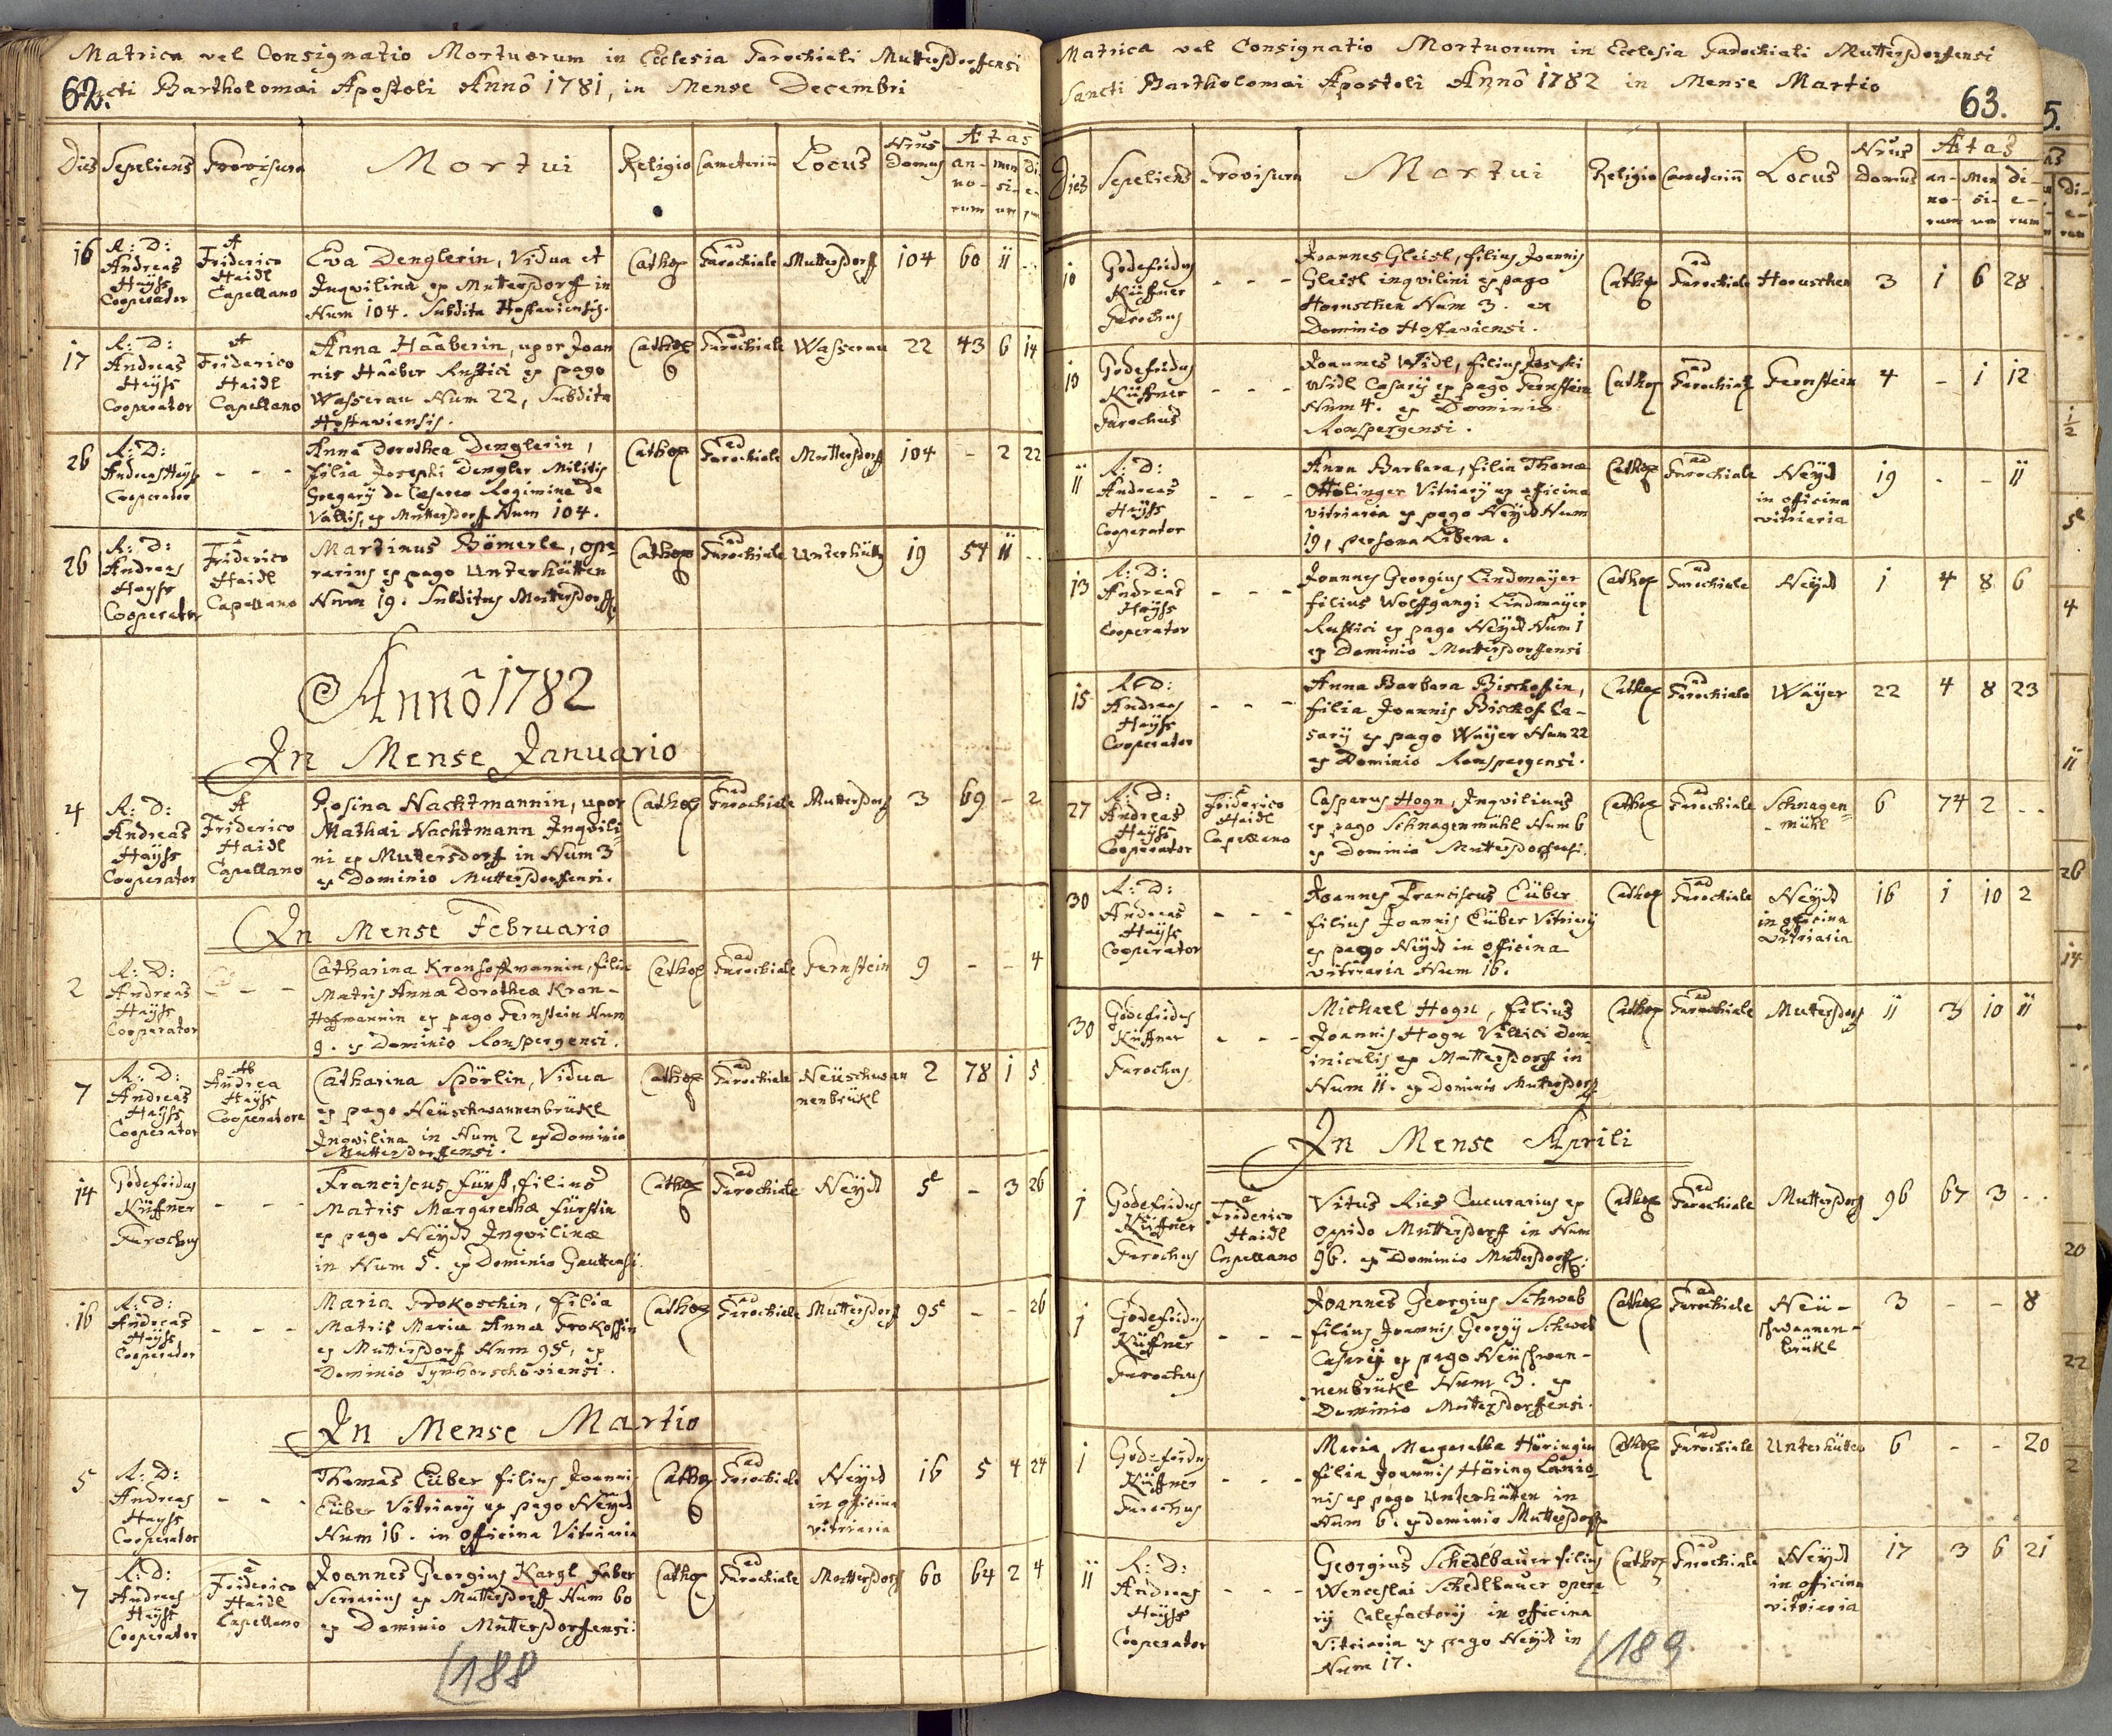 Matrica vel Consignatio Mortuorum in Ecclesia Parochiali Muttersdorffensi
62.
Sancti Bartholomæi Apostoli Annô 1781, in Mense Decembri
Dies Sepeliens Provisura Mortui Religio Cæmeteriũ Locus Nrus Domus Ætas
an-no-rum men-si-um di-e-rum
16 R: D: Andreas Haÿss Cooperator
A Friderico Haidl Capellano
Eva Denglerin, Vidua et
Inqvilina ex Muttersdorff in
Num 104. Subdita Hostaviensis.
Cathol ad Parochiale Muttersdorff 104 60 11 ..
17 R: D: Andreas Haÿss Cooperator
A Friderico Haidl Capellano
Anna Hââberin, uxor Joan
nis Hââber Rustici ex pago
Wasserau Num 22, Subdita
Hostaviensis.
Cathol ad Parochiale Wasserau 22 43 6 14
26 R: D: Andreas Haÿss Cooperator - - -
Anna Dorothea Denglerin,
filia Josephi Dengler Militis
Gregarÿ de Cæsareo Regimine de
Vallis, ex Muttersdorff Num 104.
Cathol ad Parochiale Muttersdorff 104 - 2 22
26 R: D: Andreas Haÿss Cooperator
a Friderico Haidl Capellano
Martinus Bömerle, ope=
rarius ex pago Unterhütten
Num 19. Subditus Muttersdorff
Cathol ad Parochiale Unterhütt 19 54 11 ..
Annô 1782
In Mense Januario
4 R: D: Andreas Haÿss Cooperator
A Friderico Haidl Capellano
Rosina Nachtmannin, uxor
Mathæi Nachtmann Inqvili=
ni ex Muttersdorff in Num 3
ex Dominio Muttersdorfensi.
Cathol ad Parochiale Muttersdorf 3 69 - 2
In Mense Februario
2 R: D: Andreas Haÿss Cooperator - - -
Catharina Kronhoffmannin, filia
Matris Annæ Dorotheæ Kron-
Hoffmannin ex pago Fernstein Num
9. ex Dominio Ronspergensi.
Cathol ad Parochiale Fernstein 9 - - 4
7 R: D: Andreas Haÿss Cooperator
Ab Andrea Haÿss Cooperatore
Catharina Spörlin, Vidua
ex pago Neüschwannenbrükl
Inqvilina in Num 2 ex Dominio
Muttersdorffensi.
Cathol ad Parochiale Neüschwan
nenbrükl 2 78 1 5
14 Godefridus Küffner Parochus - - -
Franciscus Fürst, filius
Matris Margarethæ Fürstin
ex pago Neÿd Inqvilinæ
in Num 5.
Cathol ad Parochiale Neÿd 5 - 3 26
16 R: D: Andreas Haÿss Cooperator - - -
Maria Prokoschin, filia
Matris Mariæ Annæ
ex Muttersdorf Num 95, ex
Dominio
Cathol ad Parochiale Muttersdorf 95 - - 26
In Mense Martio
5 R: D: Andreas Haÿss Cooperator - - -
Thomas Eüber filius Joannis
Eüber Vitriarÿ ex pago Neÿd
Num 16. in officina Vitriaria
Cathol ad Parochiale Neÿd
in officina
vitriaria 16 5 4 24
7 R: D: Andreas Haÿss Cooperator
a Friderico Haidl Capellano
Joannes Georgius Kargl Faber
Serrarius ex Muttersdorff Num 60
ex Dominio Muttersdorfensi:
Cathol ad Parochiale Muttersdorf 60 64 2 4
188
Matrica vel Consignatio Mortuorum in Ecclesia Parochiali Muttersdorffensi
Sancti Bartholomæi Apostoli Annô 1782 in Mense Martio
63.
Dies Sepeliens Provisura Mortui Religio Cæmeteriũ Locus Nrus Domus Ætas
an-no-rum men-si-um di-e-rum
10 Godefridus Küffner Parochus - - -
Joannes Gleisl, filius Joannis
Gleisl inqvilini ex pago
Horuschen Num 3. ex
Dominio Hostaviensi.
Cathol ad Parochiale Horuschen 3 1 6 28
10 Godefridus Küffner Parochus - - -
Joannes Widl, filius Josephi
Widl Casarÿ ex pago Fernstein
Num 4. ex Dominio
Ronspergensi.
Cathol ad Parochiale Fernstein 4 - 1 12
11 R: D: Andreas Haÿss Cooperator - - -
Anna Barbara, filia Thomæ
Ottolinger Vitriarÿ ex officina
vitriaria ex pago Neÿd Num
19, persona Libera.
Cathol ad Parochiale Neÿd
in officina
vitriaria 19 - - 11
13 R: D: Andreas Haÿss Cooperator - - -
Joannes Georgius Lindmaÿer
filius Wolffgangi Lindmaÿer
Rustici ex pago Neÿd Num 1
ex Dominio Muttersdorffensi
Cathol ad Parochiale Neÿd 1 4 8 6
15 R: D: Andreas Haÿss Cooperator - - -
Anna Barbara Bischofin,
filia Joannis Bischof Ca-
sarÿ ex pago Waÿer Num 22
ex Dominio Ronspergensi.
Cathol ad Parochiale Waÿer 22 4 8 23
27 R: D: Andreas Haÿss Cooperator
a Friderico Haidl Capellano
Casparus Hogn, Inqvilinus
ex pago Schnagenmühl Num 6
ex Dominio Muttersdorfensi.
Cathol ad Parochiale Schnagen=
mühl 6 74 2 ..
30 R: D: Andreas Haÿss Cooperator - - -
Joannes Franciscus Eüber
filius Joannis Eüber Vitriarÿ
ex pago Neÿd in officina
vitriaria Num 16.
Cathol ad Parochiale Neÿd
in officina
vitriaria 16 1 10 2
30 Godefridus Küffner Parochus - - -
Michael Hogn, filius
Joannis Hogn Villici Dom-
inicalis ex Muttersdorff in
Num 11. ex Dominio Muttersdorff
Cathol ad Parochiale Muttersdorf 11 3 10 11
In Mense Aprili
1 Godefridus Küffner Parochus
a Friderico Haidl Capellano
Vitus Ries ex
oppido Muttersdorff in Num
96. ex Dominio Muttersdorff:
Cathol ad Parochiale Muttersdorf 96 67 3 ..
1 Godefridus Küffner Parochus - - -
Joannes Georgius Schwab
filius Joannis Georgÿ Schwab
Casarÿ ex pago Neüschwan-
nenbrükl Num 3. ex
Dominio Muttersdorffensi.
Cathol ad Parochiale Neü-
schwannen-
brükl 3 - - 8
1 Godefridus Küffner Parochus - - -
Maria Margaretha Höringin
filia Joannis Höring Lanio
nis ex pago Unterhütten in
Num 6. ex dominio Muttersdorff
Cathol ad Parochiale Unterhütten 6 - - 20
11 R: D: Andreas Haÿss Cooperator - - -
Georgius Schedlbauer filius
Wenceslai Schedlbauer opera
rÿ Calefactorÿ in officina
Vitriaria ex pago Neÿd in
Num 17.
Cathol ad Parochiale Neÿd
in officina
vitriaria 17 3 6 21
189